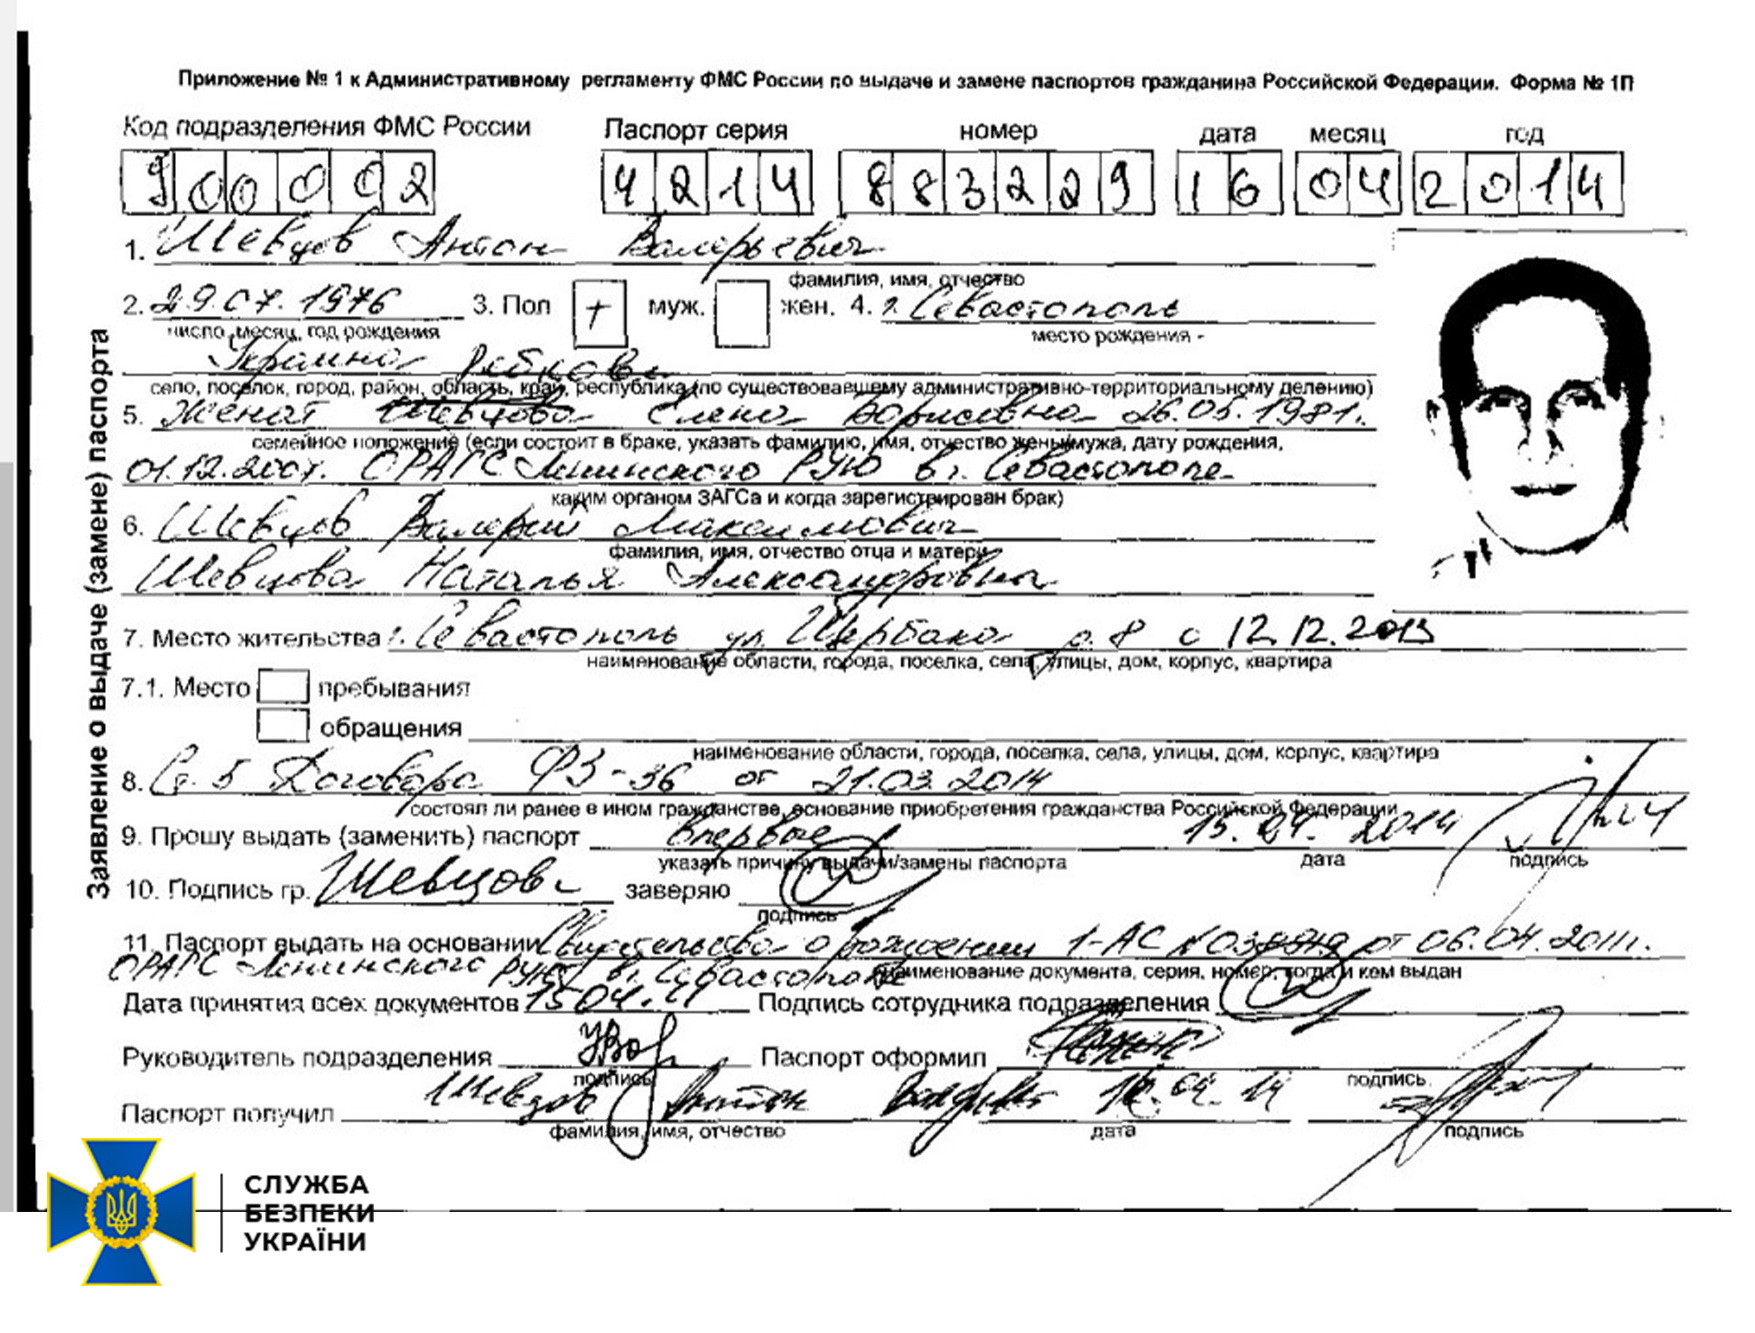 Приложение № 1 к Административному регламенту ФМС России по выдаче и замене паспортов гражданина Российской Федерации. Форма № 1П
Код подразделения ФМС России Паспорт серия номер дата месяц год
900002 4214 883229 16 04 2014
1. Шевцов Антон Валерьевич
фамилия, имя, отчество
2. 29.07.1976 3. Пол + муж. жен. 4. г. Севастополь
число, месяц, год рождения место рождения -
Украина
село, поселок, город, район, область, край, республика (по существовавшему административно-территориальному делению)
5. Женат Шевцова Елена Борисовна 26.05.1981г.
семейное положение (если состоит в браке, указать фамилию, имя, отчество жены/мужа, дату рождения,
ОРАГС Ленинского РУЮ в г. Севастополе
каким органом ЗАГСа и когда зарегистрирован брак)
6. Шевцов Валерий Максимович
фамилия, имя, отчество отца и матери
Шевцова Наталья Александровна
7. Место жительства: г. Севастополь ул. Щербака д. 8 с 12.12.2013
наименование области, города, поселка, села, улицы, дом, корпус, квартира
7.1. Место пребывания
обращения
наименование области, города, поселка, села, улицы, дом, корпус, квартира
8. Ст. 5 Договора ФЗ-36 от 21.03.2014
состоял ли ранее в ином гражданстве, основание приобретения гражданства Российской Федерации
9. Прошу выдать (заменить) паспорт впервые 15.04.2014
указать причину выдачи/замены паспорта дата подпись
10. Подпись гр. Шевцов заверяю
подпись
11. Паспорт выдать на основании Свидетельства о рождении 1-АС от 06.04.2011г.
ОРАГС Ленинского в г. Севастополе наименование документа, серия, номер, когда и кем выдан
Дата принятия всех документов Подпись сотрудника подразделения
Руководитель подразделения Паспорт оформил
подпись подпись
Паспорт получил Шевцов Антон
фамилия, имя, отчество дата подпись
Заявление о выдаче (замене) паспорта
СЛУЖБА
БЕЗПЕКИ
УКРАЇНИ